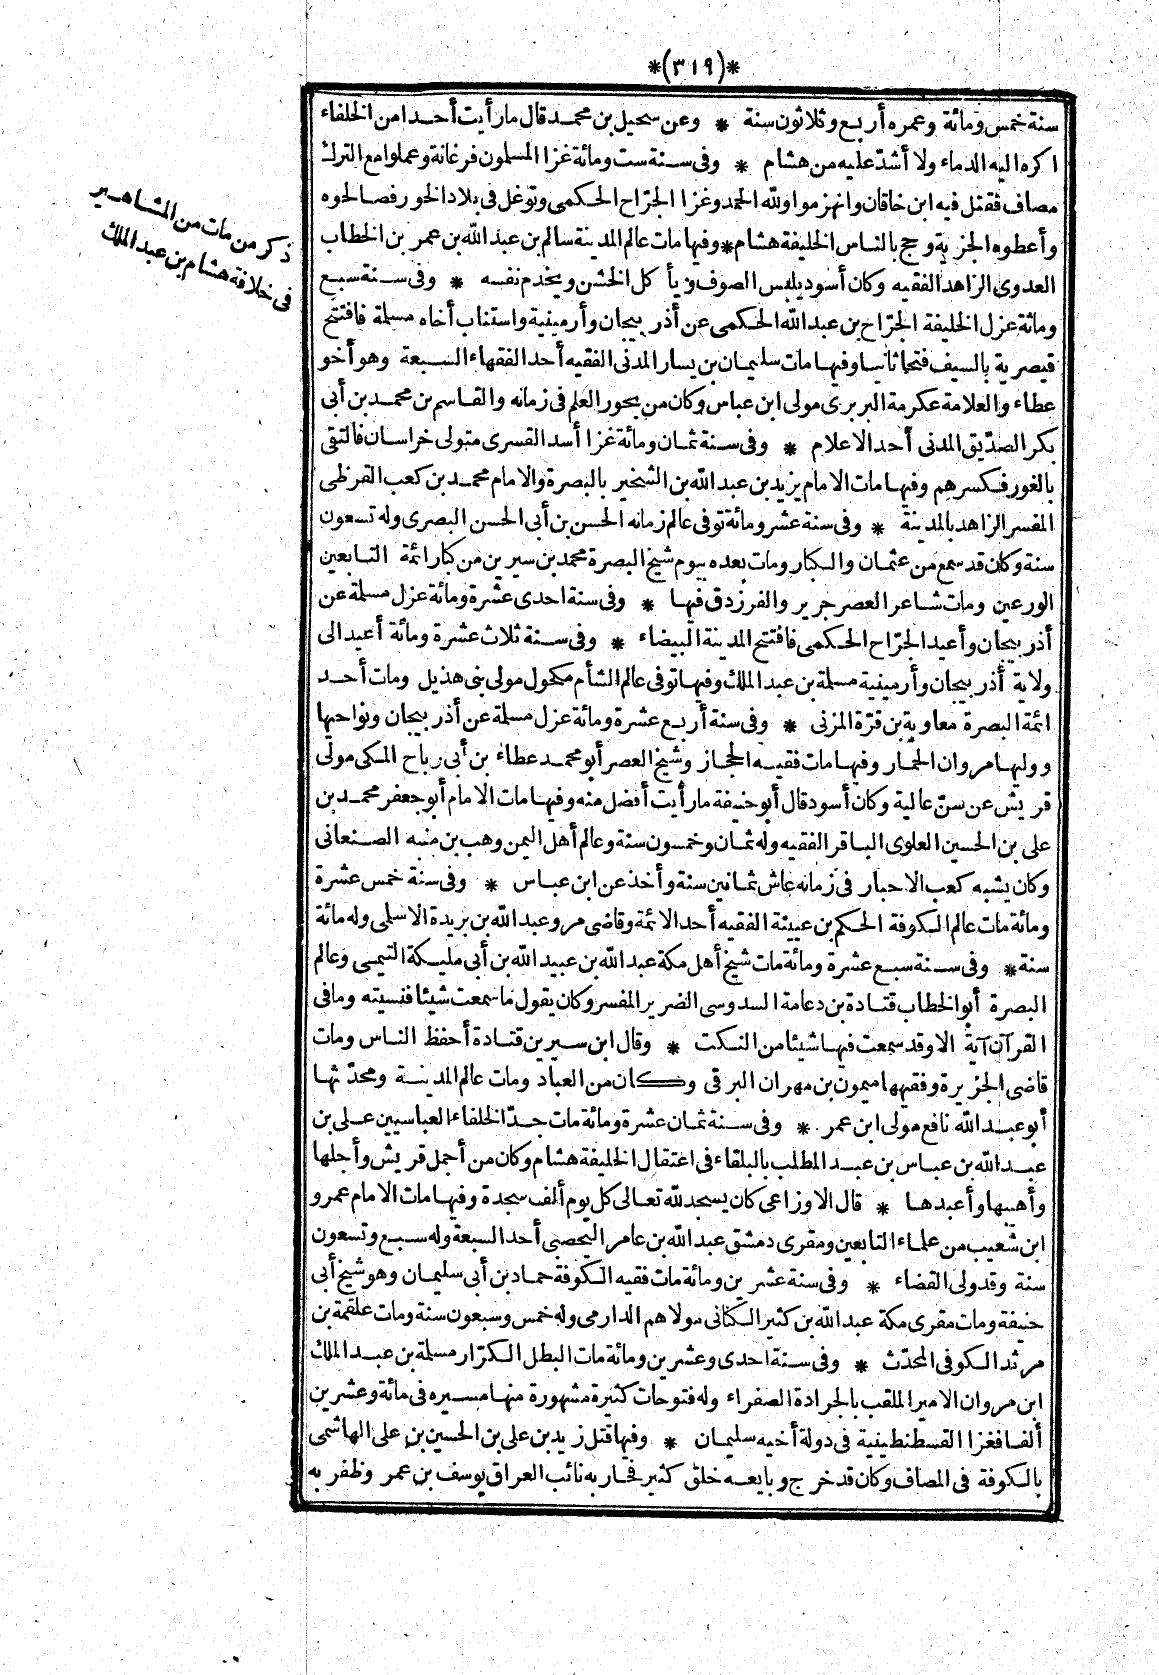 *(٣١٩)*
سنة خمس ومائة وعمره أربع وثلاثون سنة * وعن سحيل بن محمد قال ما رأيت أحدا من الخلفاء
اكره اليه الدماء ولا أشدّ عليه من هشام * وفى سنة ست ومائة غزا المسلمون فرغانة وعملوا مع الترك
مصاف فقتل فيه ابن خاقان وانهزموا ولله الحمد وغزا الجرّاح الحكمى وتوغل فى بلاد الخور فصالحوه
وأعطوه الجزية وحج بالناس الخليفة هشام * وفيها مات عالم المدينة سالم بن عبد الله بن عمر بن الخطاب
العدوى الزاهد الفقيه وكان أسود يلبس الصوف ويأ كل الخشن ويخدم نفسه * وفى سنة سبع
ومائة عزل الخليفة الجرّاح بن عبد الله الحكمى عن أذر بيجان وأرمينية واستناب أخاه مسلمة فافتتح
قيصرية بالسيف فتحا ثانيا وفيها مات سليمان بن يسار المدنى الفقيه أحد الفقهاء السبعة وهو أخو
عطاء والعلامة عكرمة البربرى مولى ابن عباس وكان من بحور العلم فى زمانه والقاسم بن محمد بن أبى
بكر الصدّيق المدنى أحد الاعلام * وفى سنة ثمان ومائة غزا أسد القسرى متولى خراسان فالتقى
بالغور فكسرهم وفيها مات الامام يزيد بن عبد الله بن الشخير بالبصرة والامام محمد بن كعب القرظى
المفسر الزاهد بالمدينة * وفى سنة عشر ومائة توفى عالم زمانه الحسن بن أبى الحسن البصرى وله تسعون
سنة وكان قد سمع من عثمان والكبار ومات بعده بيوم شيخ البصرة محمد بن سيرين من كبار ائمة التابعين
الورعين ومات شاعر العصر جرير والفرزدق فيها * وفى سنة احدى عشرة ومائة عزل مسلمة عن
أذر بيجان وأعيد الجرّاح الحكمى فافتتح المدينة البيضاء * وفى سنة ثلاث عشرة ومائة أعيد الى
ولاية أذر بيجان وأرمينية مسلمة بن عبد الملك وفيها توفى عالم الشأم مكحول مولى بنى هذيل ومات أحد
ائمة البصرة معاوية بن قرّة المزنى * وفى سنة أربع عشرة ومائة عزل مسلمة عن أذر بيجان ونواحيها
ووليها مروان الحمار وفيها مات فقيه الحجاز وشيخ العصر أبو محمد عطاء بن أبى رباح المكى مولى
قريش عن سنّ عالية وكان أسود قال أبو حنيفة ما رأيت أفضل منه وفيها مات الامام أبو جعفر محمد بن
على بن الحسين العلوى الباقر الفقيه وله ثمان وخمسون سنة وعالم أهل اليمن وهب بن منبه الصنعانى
وكان يشبه كعب الاحبار فى زمانه عاش ثمانين سنة وأخذ عن ابن عباس * وفى سنة خمس عشرة
ومائة مات عالم الكوفة الحكم بن عيينة الفقيه أحد الائمة وقاضى مرو عبد الله بن بريدة الاسلمى وله مائة
سنة * وفى سنة سبع عشرة ومائة مات شيخ أهل مكة عبد الله بن عبيد الله بن أبى مليكة التيمى وعالم
البصرة أبو الخطاب قتادة بن دعامة السدوسى الضرير المفسر وكان يقول ما سمعت شيئا فنسيته وما فى
القرآن آية الا وقد سمعت فيها شيئا من النكت * وقال ابن سيرين قتادة أحفظ الناس ومات
قاضى الجزيرة وفقيهها ميمون بن مهران البرقى وكان من العباد ومات عالم المدينة ومحدّثها
أبو عبد الله نافع مولى ابن عمر * وفى سنة ثمان عشرة ومائة مات جدّ الخلفاء العباسيين على بن
عبد الله بن عباس بن عبد المطلب بالبلقاء فى اعتقال الخليفة هشام وكان من أجمل قريش وأجلها
وأهيبها وأعبدها * قال الاوزاعى كان يسجد لله تعالى كل يوم ألف سجدة وفيها مات الامام عمرو
ابن شعيب من علماء التابعين ومقرى دمشق عبد الله بن عامر اليحصبى أحد السبعة وله سبع وتسعون
سنة وقد ولى القضاء * وفى سنة عشرين ومائة مات فقيه الكوفة حماد بن أبى سليمان وهو شيخ أبى
حنيفة ومات مقرى مكة عبد الله بن كثير الكنانى مولاهم الدارمى وله خمس وسبعون سنة ومات علقمة بن
مرثد الكوفى المحدّث * وفى سنة احدى وعشرين ومائة مات البطل الكرّار مسلمة بن عبد الملك
ابن مروان الامير الملقب بالجرادة الصفراء وله فتوحات كثيرة مشهورة منها مسيره فى مائة وعشرين
ألفا فغزا القسطنطينية فى دولة أخيه سليمان * وفيها قتل زيد بن على بن الحسين بن على الهاشمى
بالكوفة فى المصاف وكان قد خرج وبايعه خلق كثير فحاربه نائب العراق يوسف بن عمر وظفر به
ذكر من مات من المشاهير
فى خلافة هشام بن عبد الملك